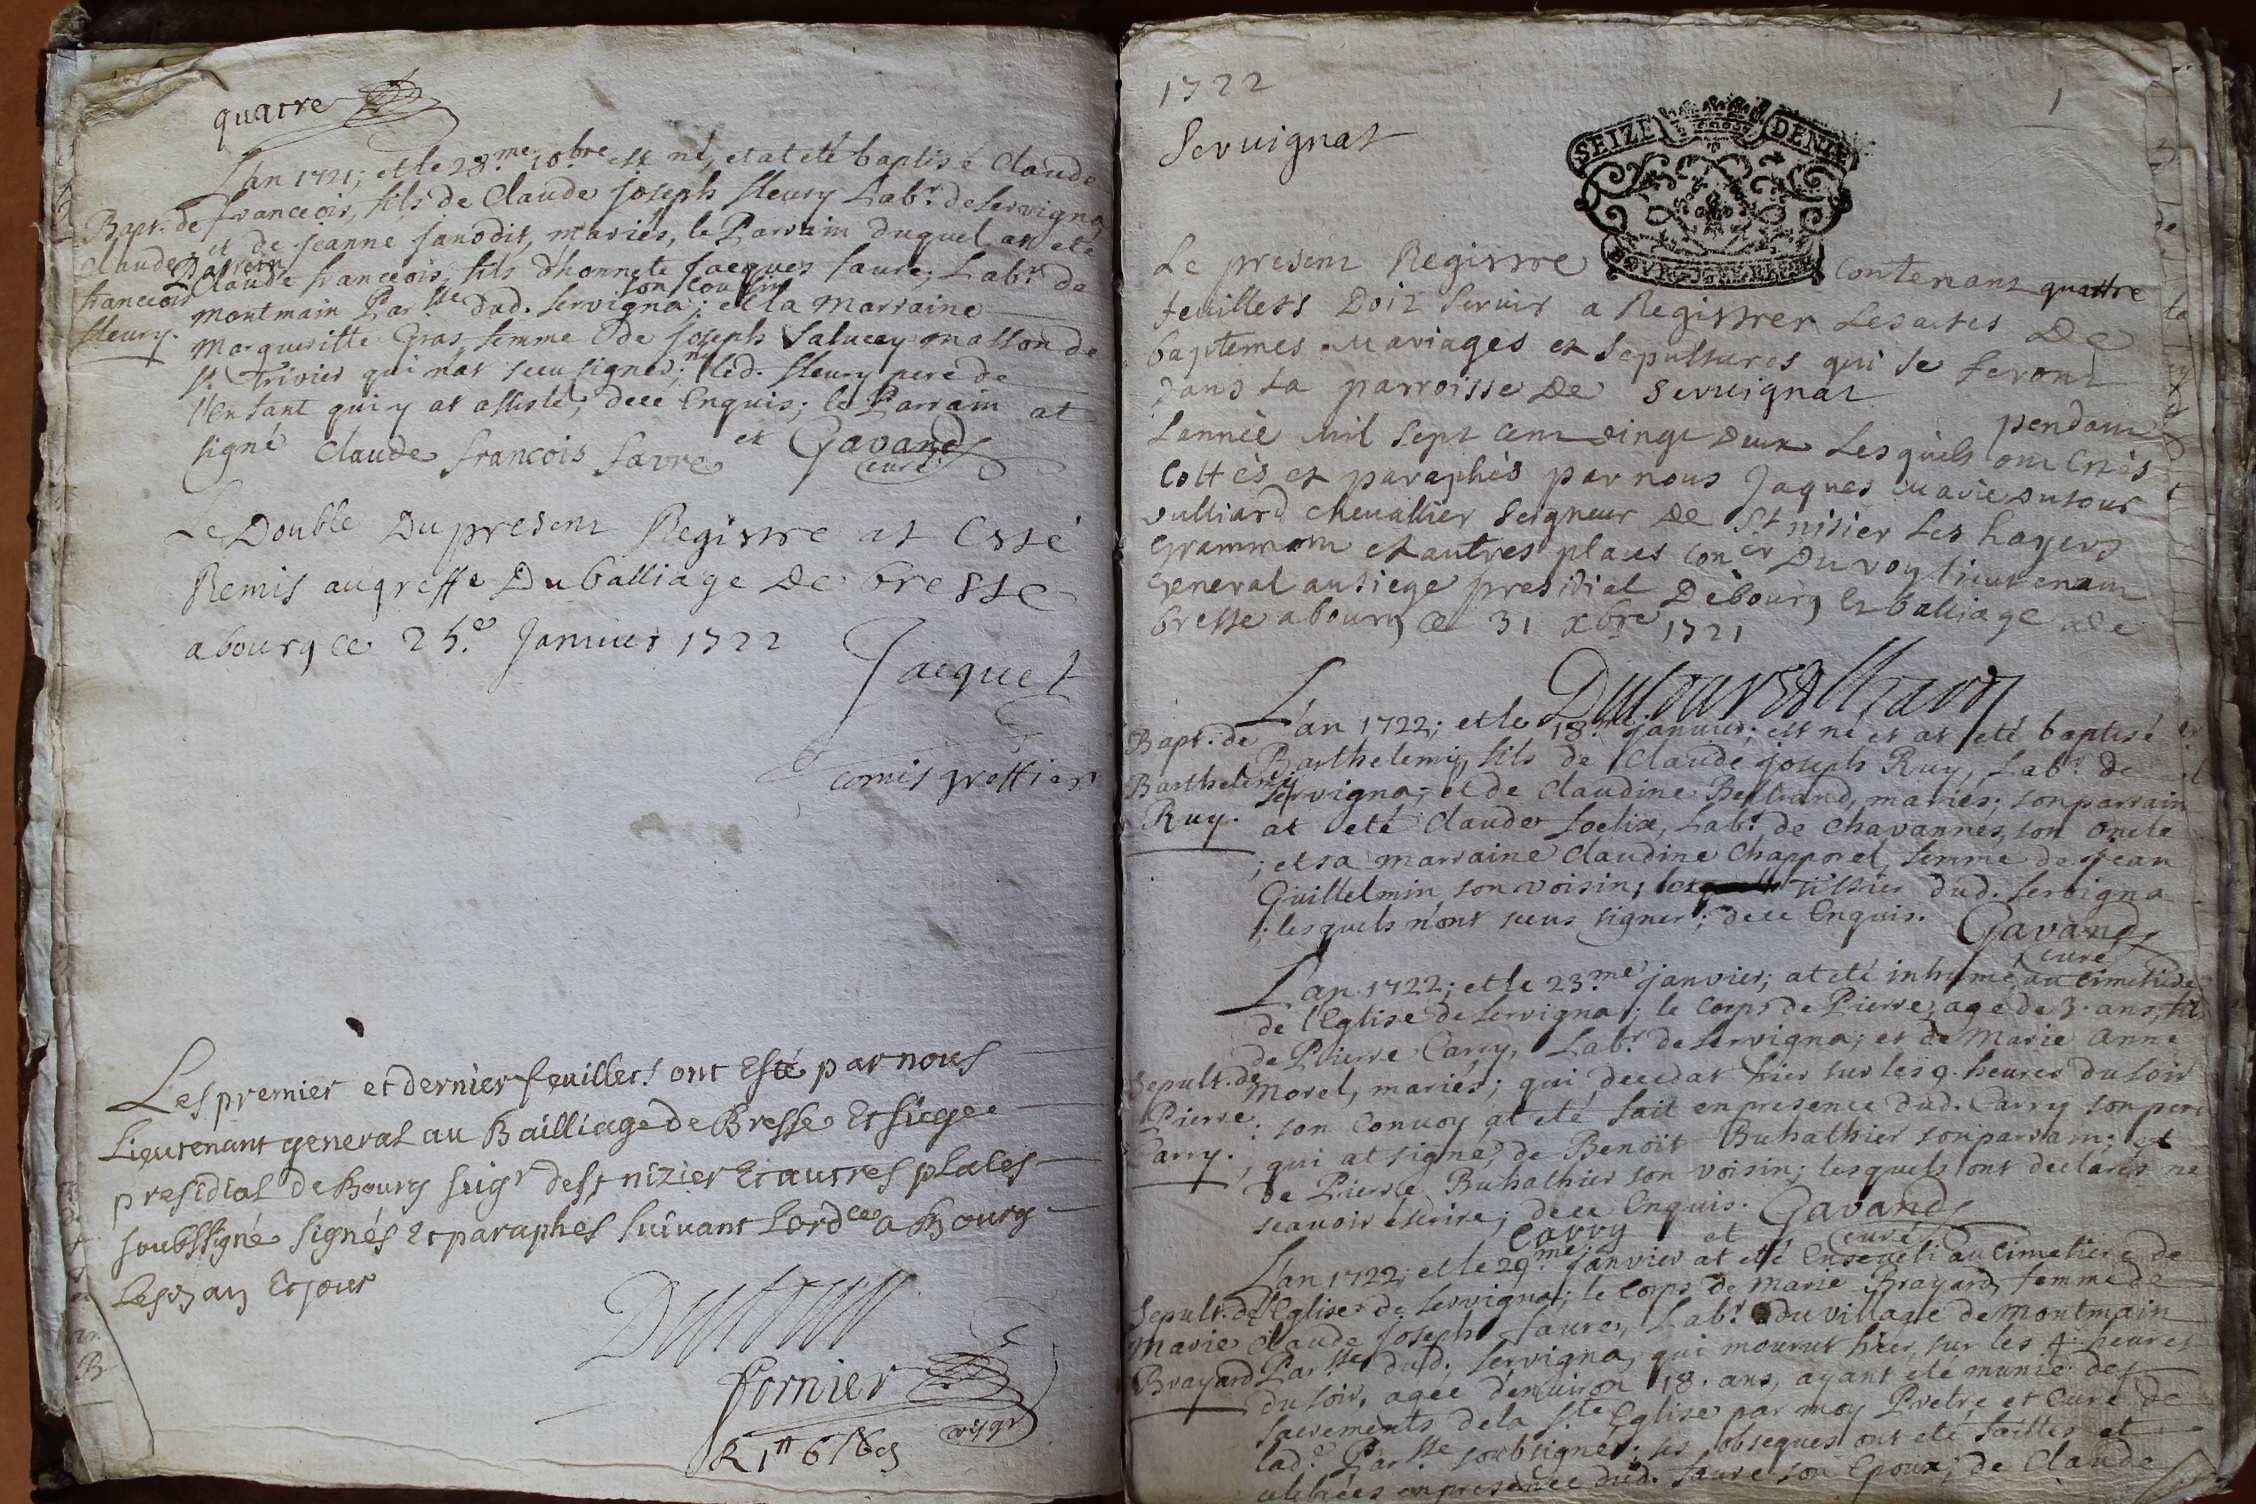 quatre
L'an 1721; et le 28.me 10.bre est né, et at eté baptisé Claude
Bapt. de
Claude
francois
fleury.
franceois, fils de Claude joseph fleury Lab.r de Servigna
et de jeanne janodit, mariés, le Parrain duquel at eté
Claude franceois, fils d'honnete jacques faure; Lab.r de
son cousin
montmain Par.sse dud. Servigna; et la marraine
Margueritte Gras, femme de joseph masson de
St. Trivier qui n'at sceu signer; led. fleury pere de
l'Enfant qui y at assisté, dece Enquis; le Parrain at
signé Claude francois favre et Gavand
curé
Le Double Du present Registre at Esté
Remis au greffe Du balliage de bresse
a bourg ce 25.e Janvier 1722
Jacquet
comis greffier
Les premier et dernier feuillets ont Esté par nous
Lieutenant general au Bailliage de Bresse Et siege
presidial de Bourg seig.r de st nizier Et autres places
soubssigné signés Et paraphés suivant Lord.ce a Bourg
Les an Et jour
fornier
1722
Servignat
1
SEIZE DENIE
Le present Registre contenant quattre
feuillets Doit servir a Registrer les actes De
baptemes mariages et sepultures qui se feront
Dans la parroisse De Servignat pendant
L'année mil sept cent vingt deux Lesquels ont Estés
Cottés et paraphés par nous Jaques marie Dufour
vulliard chevallier seigneur De St nisier les hayers
Grammont et autres places con.er Du roy lieutenant
General au siege presidial De bourg Et balliage de
bresse a bourg ce 31 xbre 1721
Bapt. de
Barthelemy
Ruy.
L'an 1722; et le 18.me janvier; est né et at eté baptisé
Barthelemy, fils de Claude joseph Ruy, Lab.r de
Servigna; et de Claudine Bertrand, mariés; son parrain
at eté Claude foelix, Lab.r de Chavannes, son oncle
; et sa marraine Claudine Chapporel, femme de jean
Guillelmin son voisin, tissier dud. Servigna
; lesquels n'ont sceus signer; dece Enquis. Gavand
curé
L'an 1722; et le 23.me janvier; at eté inhumé au cimetiere
de l'Eglise de Servigna; le corps de Pierre, agé de 3. ans, fils
de Pierre Carry, Lab.r de Servigna; et de Marie Anne
Sepult. de
Pierre
Carry.
Morel, mariés; qui decedat hier sur les 9. heures du soir
; son Convoy at eté fait en presence dud. Carry son pere
, qui at signé, de Benoit Buhathier son parrain; et
de Pierre Buhathier son voisin; lesquels ont declarés ne
scavoir escrire; dece Enquis.
Carry et Gavand
curé
L'an 1722; et le 29.me janvier at eté Enseveli au cimetiere de
Sepult. de
Marie
Brayard
l'Eglise de Servigna; le corps de Marie Brayard, femme de
Claude joseph faure, Lab.r du village de montmain
Par.sse dud. Servigna, qui mourut hier, sur les 4. heures
du soir, agée d'environ 18. ans, ayant eté munie des
sacrements de la S.te Eglise par moy Pretre et Curé de
lad.e Par.sse soubsigné; ses obseques ont eté faittes et
celebrées en presence dud. faure son Epoux; de Claude